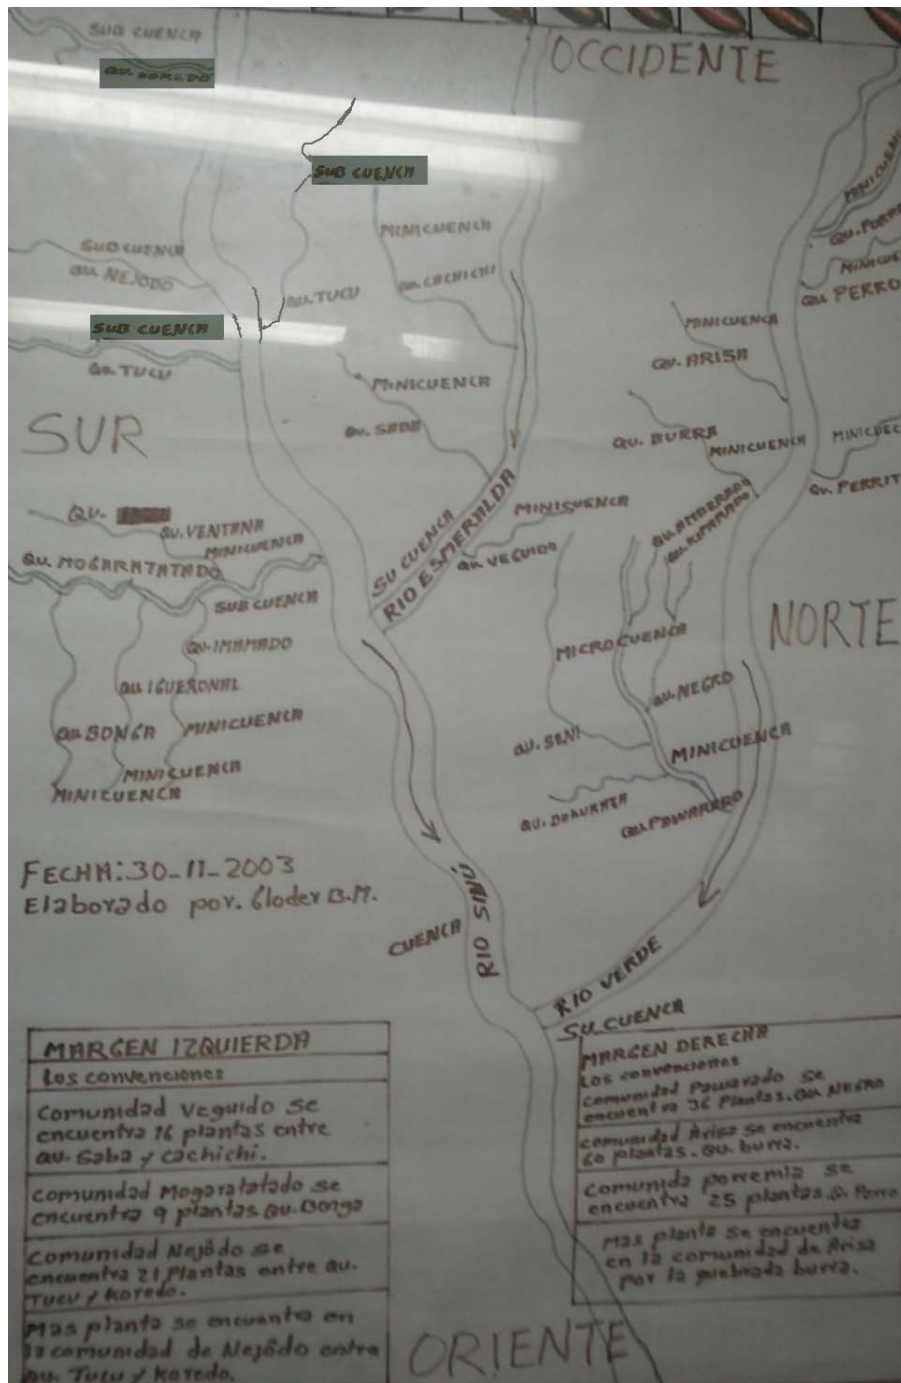 SUB CUENCA
QU. KOREDO
OCCIDENTE
SUB CUENCA
MINICUENCA
SUB CUENCA
QU. NEJODO
QU. TUCU
MINICUENCA
QU. CACHICHI
QU. PORR
MINICUE
QU. PERRO
SUB CUENCA
QU. TUCU
MINICUENCA
QU. ARISA
MINICUENCA
QU. SABA
SUR
QU. BURRA
MINICUENCA
MINICUEC
QU. PERRIT
QU.
QU. VENTANA
MINICUENCA
QU. MOGARATATADO
SUB CUENCA
SU CUENCA
RIO ESMERALDA
MINICUENCA
QU. VEGUIDO
NORTE
QU. IMAMADO
QU. IGUERONAL
QU. BONGA
MINICUENCA
MINICUENCA
MINICUENCA
MICROCUENCA
QU. NEGRO
QU. SENI
MINICUENCA
QU. PAWARADO
FECHA: 30-11-2003
Elaborado por. Cloder B.M.
CUENCA
RIO SINÚ
RIO VERDE
SU CUENCA
MARGEN IZQUIERDA
Los convenciones
Comunidad Veguido se
encuentra 16 plantas entre
qu. Saba y cachichi.
comunidad Mogaratatado se
encuentra 9 plantas Qu. Bonga
Comunidad Nejõdo se
encuentra 21 Plantas entre qu.
Tucu y Koredo.
Mas planta se encuentra en
la comunidad de Nejõdo entre
qu. Tucu y Koredo.
MARGEN DERECHA
Los convenciones
comunidad Pawarado se
encuentra 36 Plantas. Qu NEGRO
comunidad Arisa se encuentra
60 plantas. Qu. burra.
Comunida porremia se
encuentra 25 plantas Q. Perro
Mas planta se encuentra
en la comunidad de Arisa
por la quebrada burra.
ORIENTE